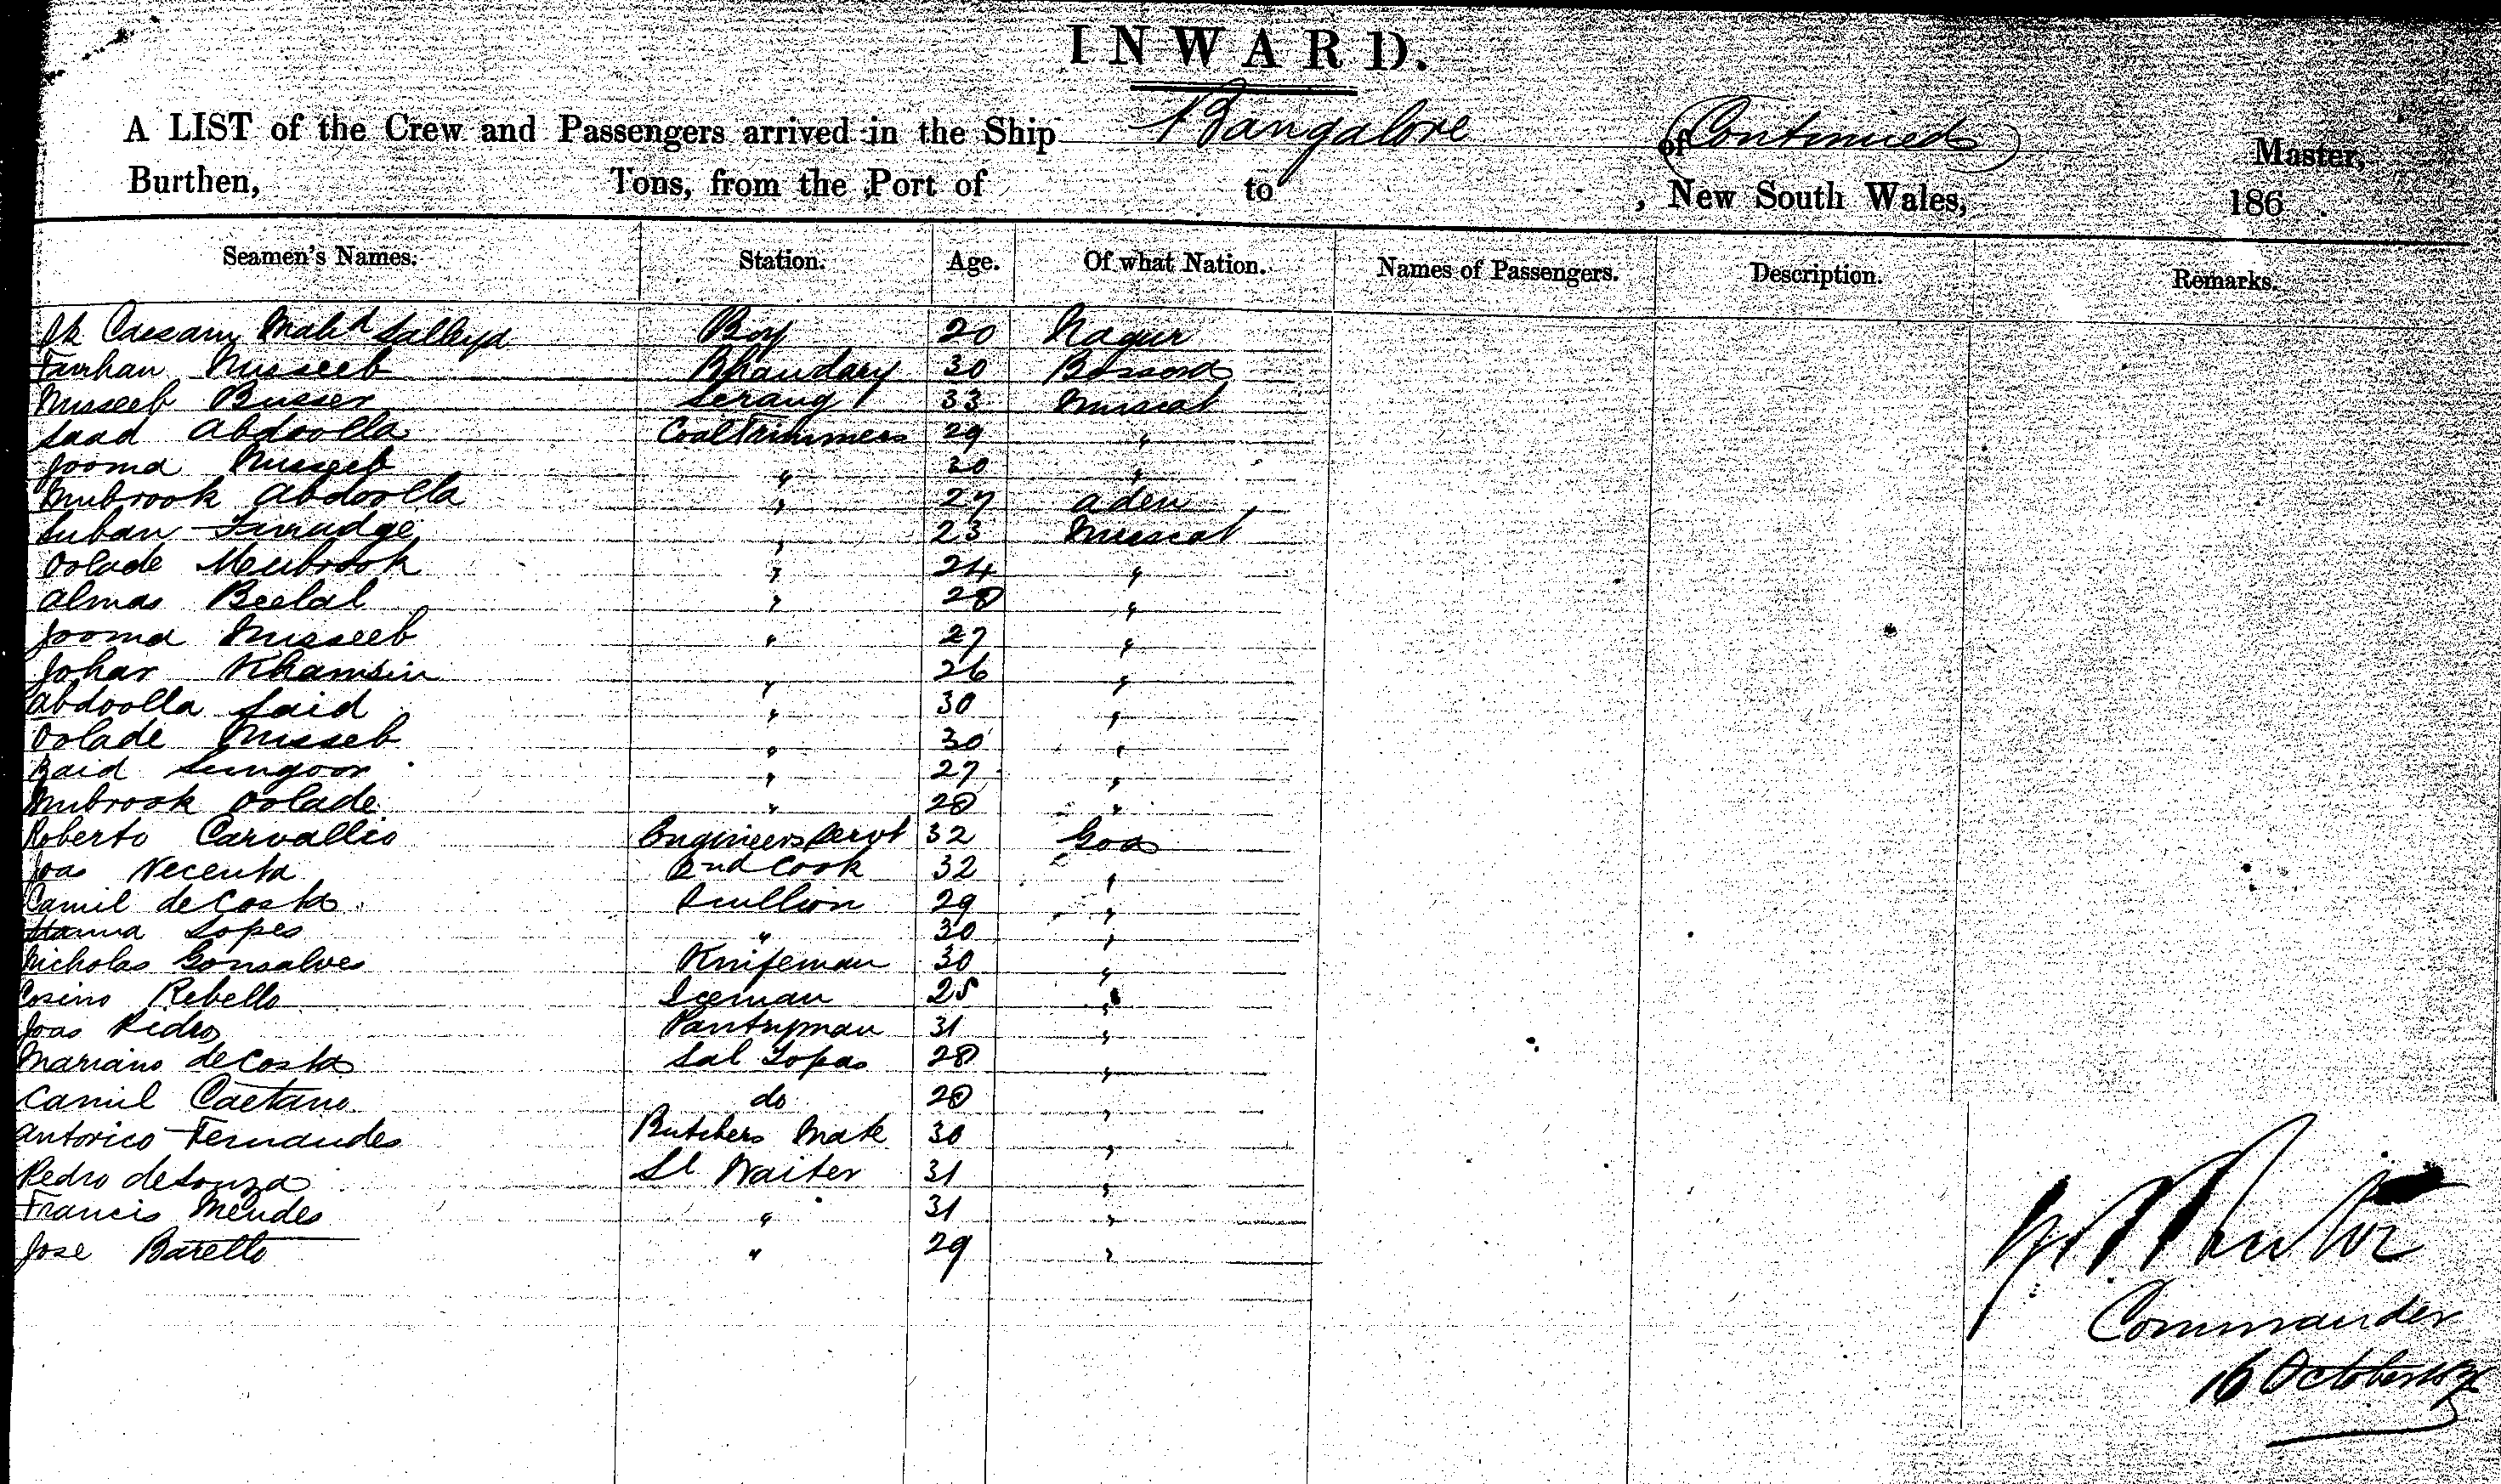 INWARD.
A LIST of the Crew and Passengers arrived in the Ship Bangalore of (Continued) Master,
Burthen, Tons, from the Port of to , New South Wales, 186 .
Seamen's Names. Station. Age. Of what Nation. Names of Passengers. Description. Remarks.
Sk Cassam Mahd Boy 20 Nagur
Farhan Nusseeb Bhandary 30
Nusseeb Busser Serang 33 Muscat
Saad Abdoolla Coal Trimmers 29 "
Jooma Nusseeb " 30 "
Mubrook Abdoolla " 27 Aden
Suban " 23 Muscat
Oolade Meubrook " 24 "
Almas Beelal " 28 "
Jooma Nusseeb " 27 "
Johar Khamsin " 26 "
Abdoolla Said " 30 "
Oolade Nusseb " 30 "
Zaid Sungoor " 27 "
Mubrook Oolade " 28 "
Roberto Carvallio Engineers Servt 32 Goa
Joas Vecenta 2nd Cook 32 "
Camil de Costa Scullion 29 "
Lopes " 30 "
Nicholas Gonsalves Knifeman 30 "
Cosino Rebello Iceman 25 "
Joas Pedro Pantryman 31 "
Mariano de Costa Sal Topas 28 "
Camil Caetano do 28 "
Antonico Fernandes Butchers Mate 30 "
Pedro de Souza Sl Waiter 31 "
Francis Mendes " 31 "
Jose Baretto " 29 "
Commander
16 October